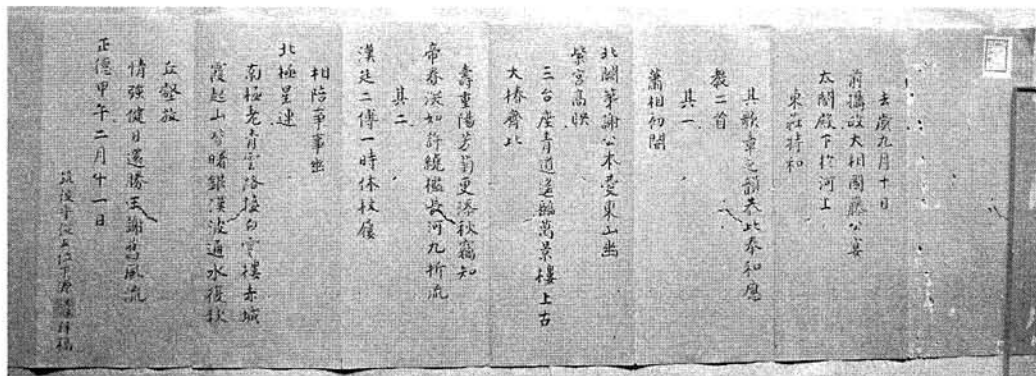 去歳九月十日
前攝政大相國藤公宴
太閤殿下於河上
東莊特和
其歌章之韻恭此奉和應
教二首
其一
蕭相初開
北闕第謝公本愛東山幽
紫宮高映
三台座青道遥臨萬景樓上古
大椿齊比
壽重陽芳菊更添秋竊知
帝春深如許繞檻長河九折流
其二
漢廷二傅一時休杖屨
相陪事事幽
北極星連
南極老青雲路接白雲樓赤城
霞起山當曙銀漢波通水復秋
丘壑放
情強健日還勝王謝舊風流
正德甲午二月廿一日
筑後守從五位下源 拜稿